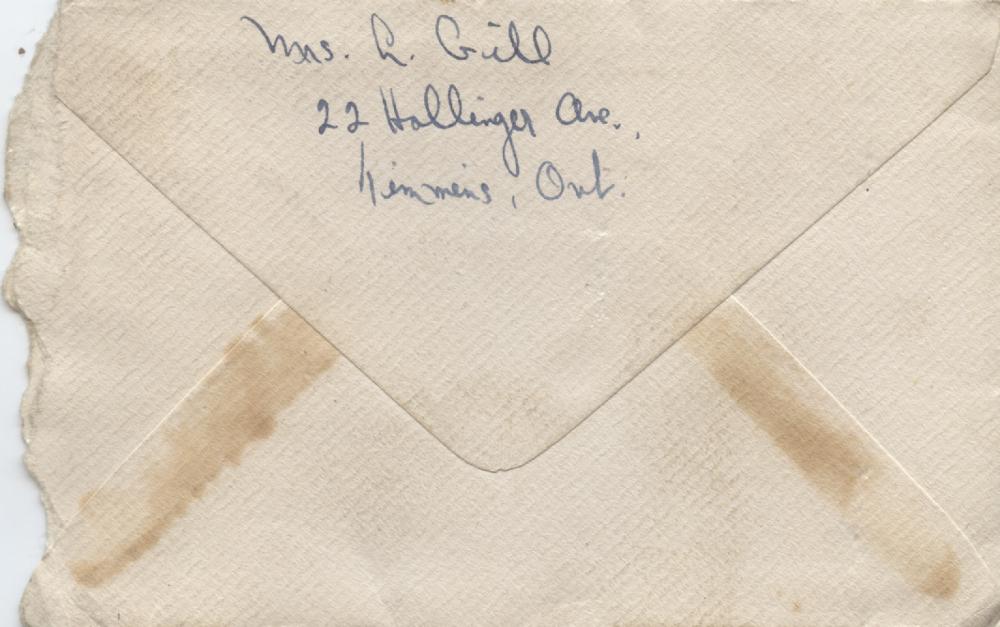 Mrs. L. Gill
22 Hollinger Ave.,
Timmins, Ont.